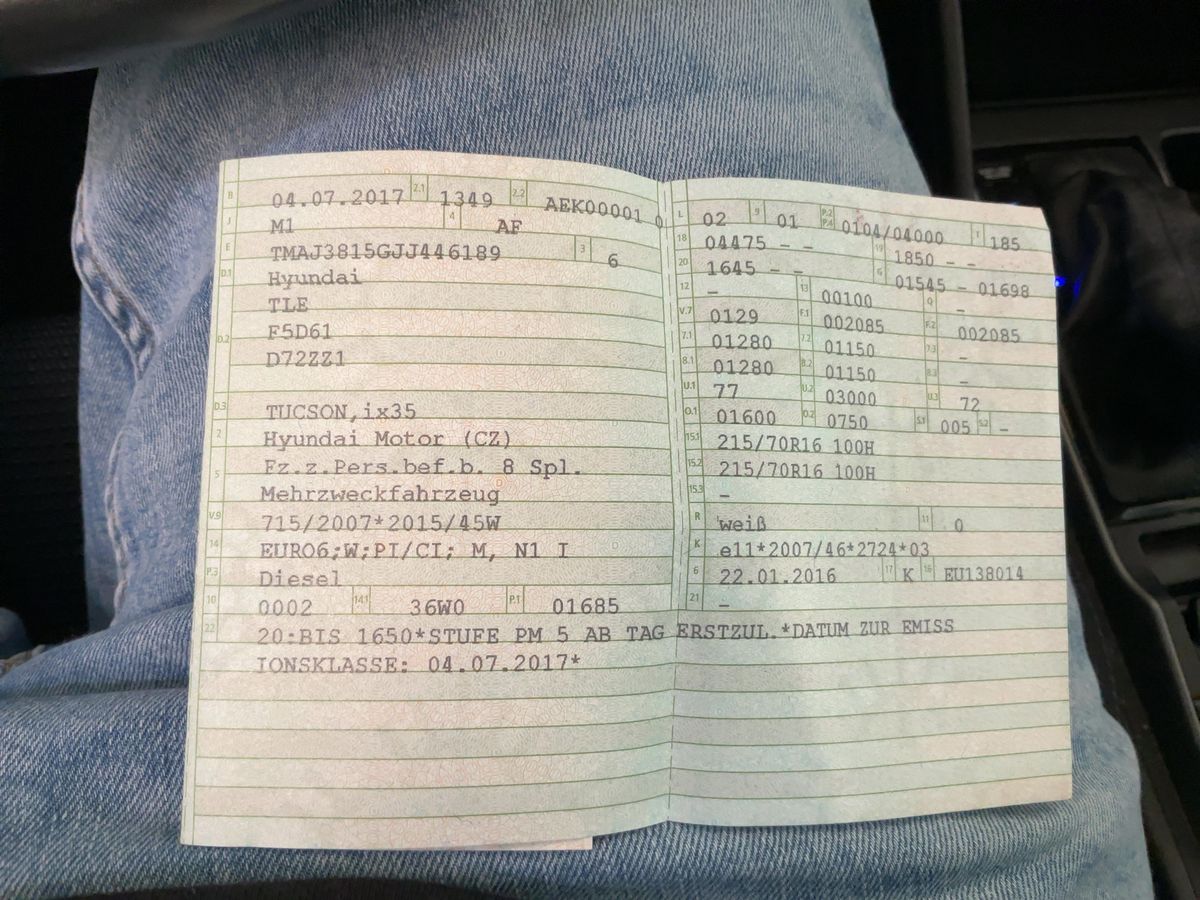 B 04.07.2017 2.1 1349 2.2 AEK00001 0
J M1 4 AF
E TMAJ3815GJJ446189 3 6
D.1 Hyundai
TLE
D.2 F5D61
D72ZZ1
D.3 TUCSON,ix35
2 Hyundai Motor (CZ)
5 Fz.z.Pers.bef.b. 8 Spl.
Mehrzweckfahrzeug
V.9 715/2007*2015/45W
14 EURO6;W;PI/CI; M, N1 I
P.3 Diesel
10 0002 14.1 36W0 P.1 01685
L 02 9 01 P.2 P.4 0104/04000 T 185
18 04475 - - 19 1850 - -
20 1645 - - G 01545 - 01698
12 - 13 00100 Q -
V.7 0129 F.1 002085 F.2 002085
7.1 01280 7.2 01150 7.3 -
8.1 01280 8.2 01150 8.3 -
U.1 77 U.2 03000 U.3 72
O.1 01600 O.2 0750 S.1 005 S.2 -
15.1 215/70R16 100H
15.2 215/70R16 100H
15.3 -
R weiß 11 0
K e11*2007/46*2724*03
6 22.01.2016 17 K 16 EU138014
21 -
22 20:BIS 1650*STUFE PM 5 AB TAG ERSTZUL.*DATUM ZUR EMISS
IONSKLASSE: 04.07.2017*